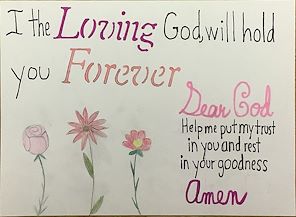 I the Loving God, will hold
you Forever
Dear God
Help me put my trust
in you and rest
in your goodness
Amen